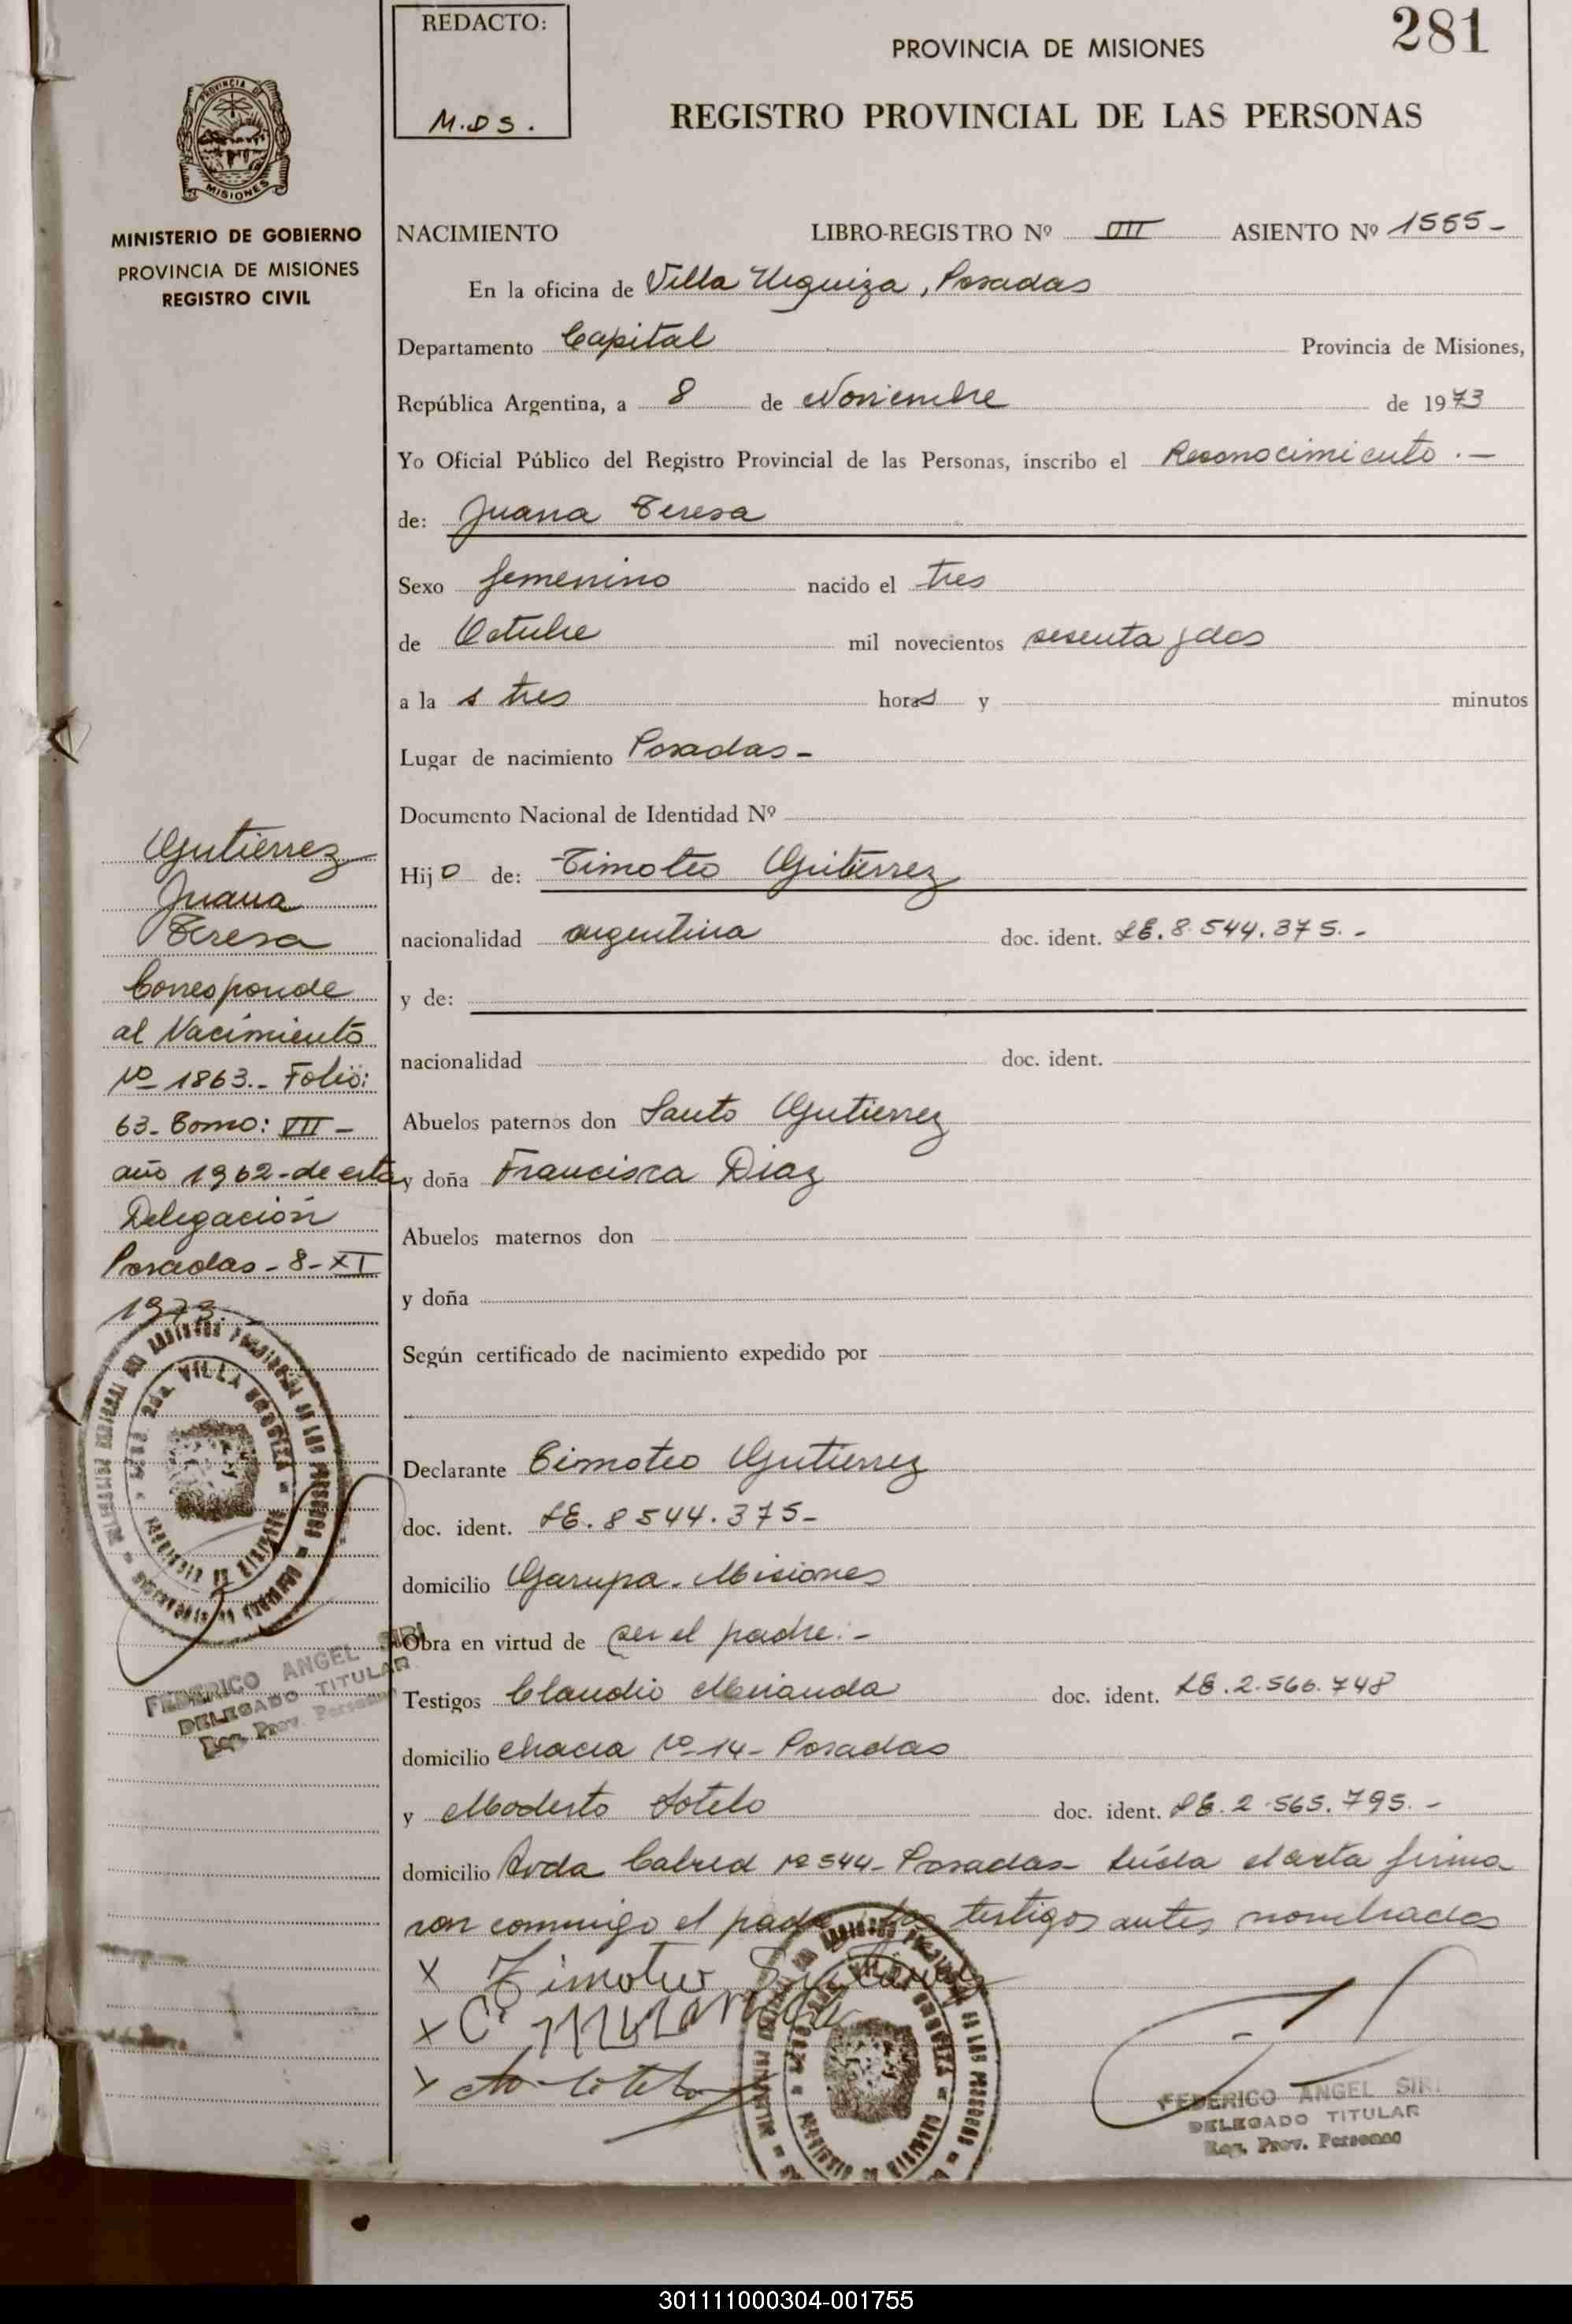 REDACTO:
M.D S.
281
PROVINCIA DE MISIONES
REGISTRO PROVINCIAL DE LAS PERSONAS
PROVINCIA DE
MISIONES
MINISTERIO DE GOBIERNO
PROVINCIA DE MISIONES
REGISTRO CIVIL
NACIMIENTO LIBRO-REGISTRO Nº ASIENTO Nº 1555-
En la oficina de Villa Urquiza, Posadas
Departamento Capital Provincia de Misiones,
República Argentina, a 8 de Noviembre de 1973
Yo Oficial Público del Registro Provincial de las Personas, inscribo el Reconocimiento.-
de: Juana Teresa
Sexo femenino nacido el tres
de Octubre mil novecientos sesenta y dos
a la s tres horas y minutos
Lugar de nacimiento Posadas-
Documento Nacional de Identidad Nº
Hijo de: Timoteo Gutierrez
nacionalidad argentina doc. ident. LE. 8.544.375.-
y de:
nacionalidad doc. ident.
Abuelos paternos don Santo Gutierrez
y doña Francisca Diaz
Abuelos maternos don
y doña
Según certificado de nacimiento expedido por
Declarante Timoteo Gutierrez
doc. ident. LE. 8544.375-
domicilio Garupa. Misiones
Obra en virtud de ser el padre.-
Testigos Claudio Miranda doc. ident. LE.2.566.748
domicilio chacra Nº 14- Posadas
y Modesto Sotelo doc. ident. LE.2.565.795.-
domicilio Avda Cabred Nº 544- Posadas- Leída el acta firma
con conmigo el padre y los testigos antes nombrados
x Timoteo Gutierrez
x C. Miranda
x Sotelo
FEDERICO ANGEL SIRI
DELEGADO TITULAR
Reg. Prov. Personas
Gutierrez
Juana
Teresa
Corresponde
al Nacimiento
Nº 1863.- Folio:
63- Tomo: VII-
año 1962-de esta
Delegación
Posadas-8-XI
1973.
VILLA URQUIZA
FEDERICO ANGEL SIRI
DELEGADO TITULAR
Reg. Prov. Personas
301111000304-001755